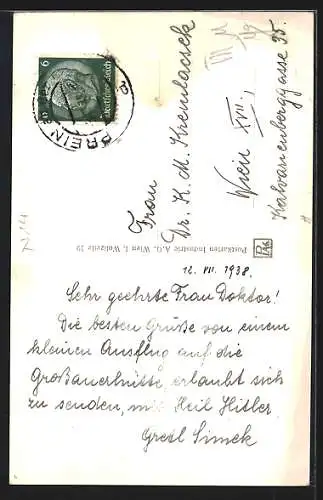 12. VII. 1938.
Sehr geehrte Frau Doktor!
Die besten Grüße von einem
kleinen Ausflug auf die
Großauerhütte, erlaubt sich
zu senden, mit Heil Hitler
Gretl Simek
Frau
Dr. K. M. Kremlacsek
Wien XVII.,
Kalvarienberggasse 35.
Postkarten Industrie A. G., Wien I, Wollzeile 19
PAG
6
Deutsches Reich
PREIN